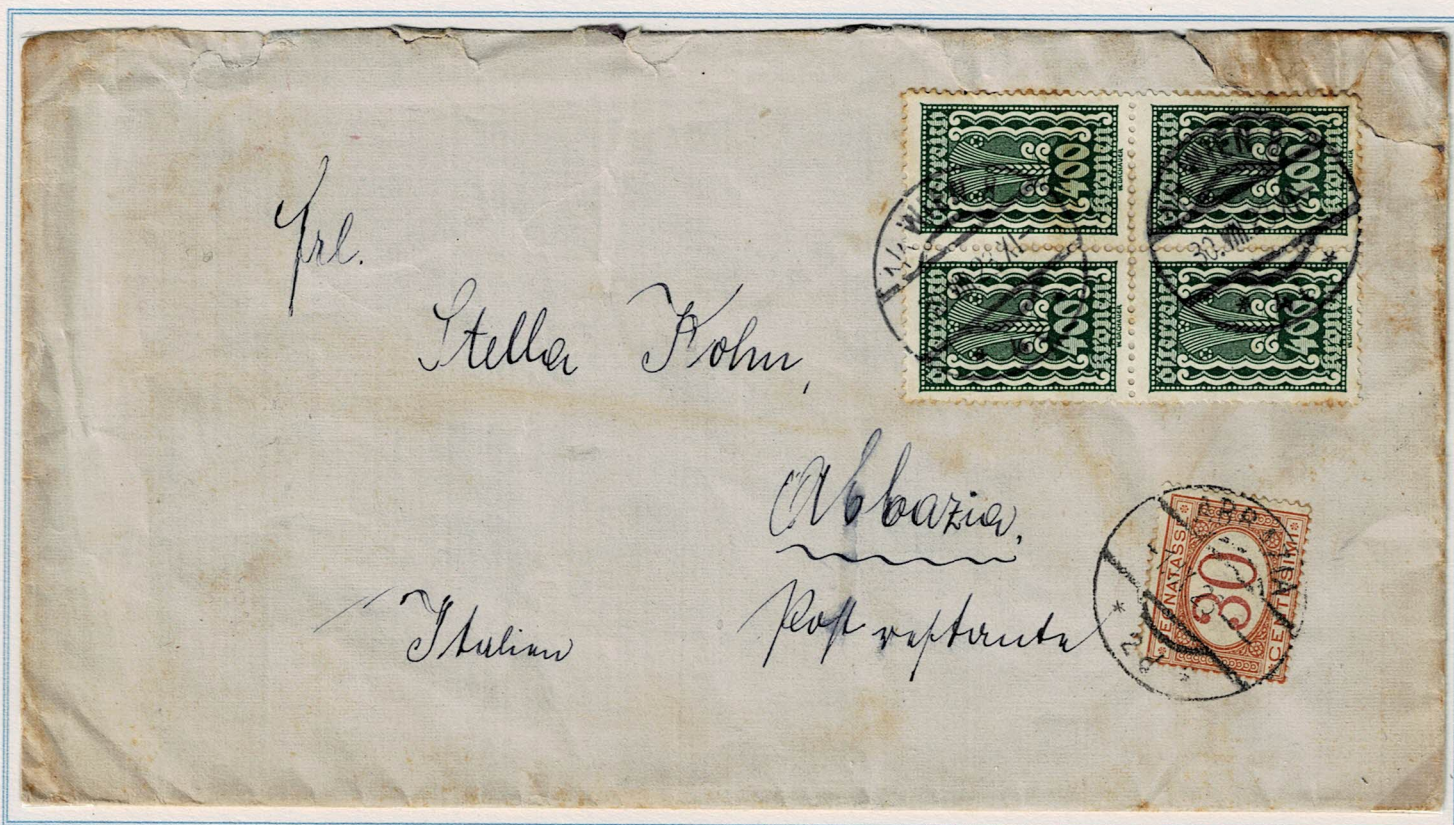 Frl.
Stella Kohn,
Abbazia,
Post restante
Italien
österreich
400
kronen
österreich
400
kronen
österreich
400
kronen
österreich
400
kronen
WIEN
30.VIII.
SEGNATASSE
30
CENTESIMI
ABBAZIA